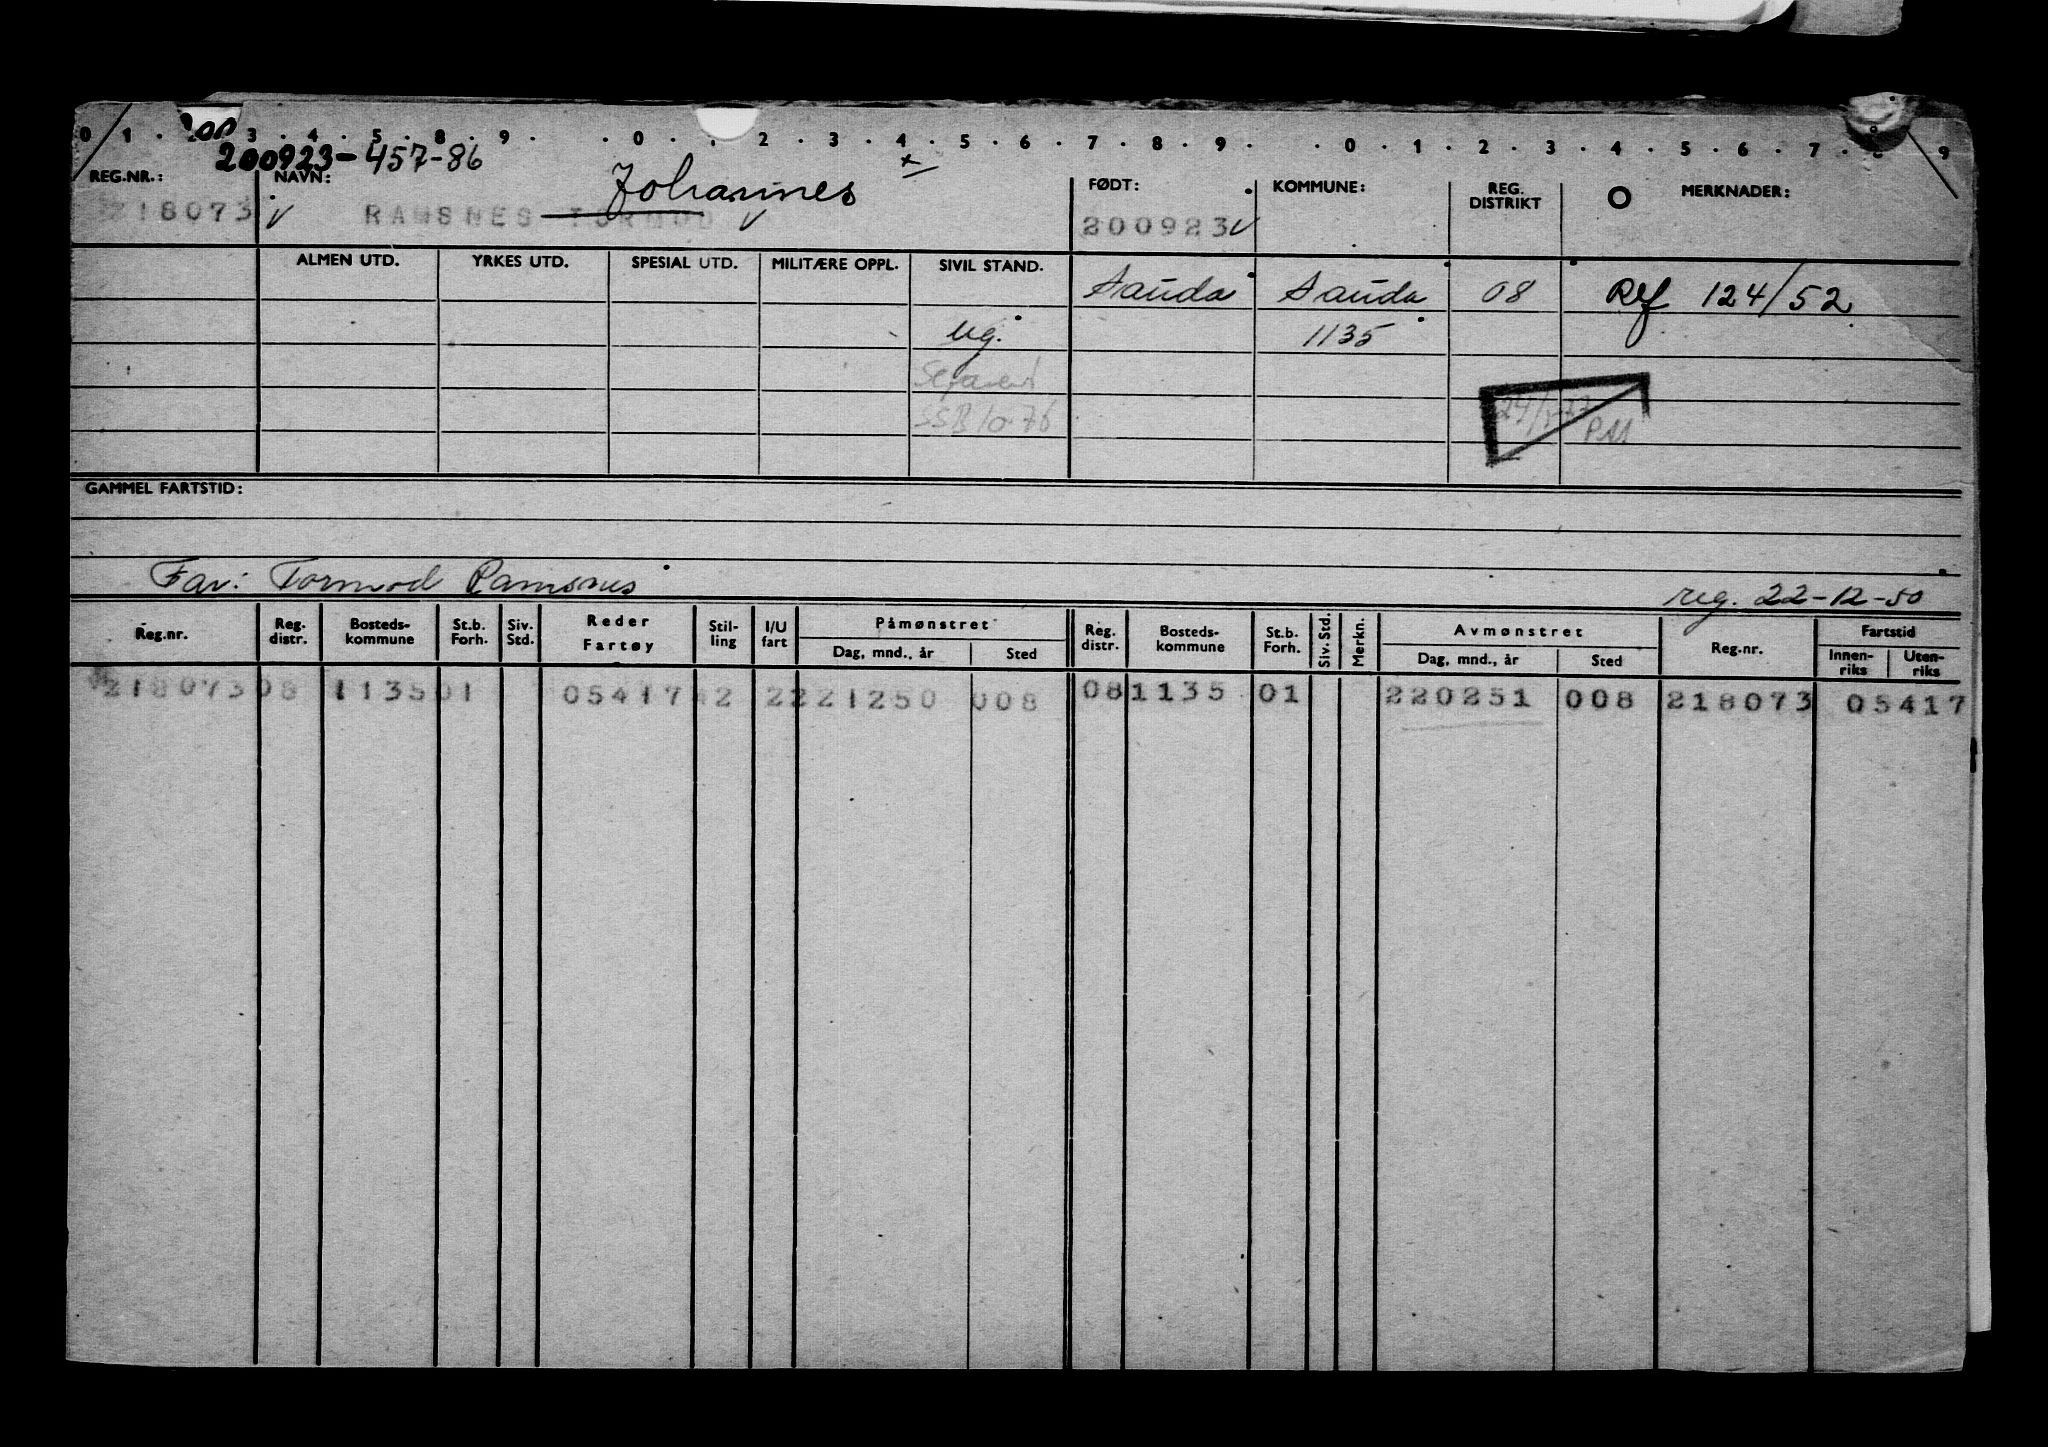 0 1 . 3 . 4 . 5 . 8 . 9 . . 0 . . 2 . 3 . 4 . 5 . 6 . 7 . 8 . 9 . . 0 . 1 . 2 . 3 . 4 . 5 . 6 . 7 . 8 . 9
200923-457-86
REG.NR.: NAVN: Johannes FØDT: KOMMUNE: REG. DISTRIKT MERKNADER:
218073 RAMSNES TORMOD 200923
ALMEN UTD. YRKES UTD. SPESIAL UTD. MILITÆRE OPPL. SIVIL STAND.
Sauda Sauda 08 Ref 124/52
ug. 1135
Separert
SSB 10-76
PAM
GAMMEL FARTSTID:
Far: Tormod Ramsnes reg. 22-12-50
Reg.nr. Reg. distr. Bosteds-kommune St.b. Forh. Siv. Std. Reder Fartøy Stil-ling I/U fart Påmønstret Reg. distr. Bosteds-kommune St.b. Forh. Siv. Std. Merkn. Avmønstret Reg.nr. Fartstid
Dag, mnd., år Sted Dag, mnd., år Sted Innen-riks Uten-riks
218073 08 1135 01 05417 42 2 221250 008 08 1135 01 220251 008 218073 05417